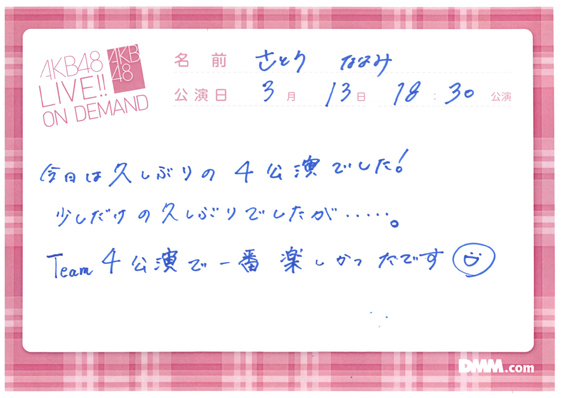 AKB48
LIVE!!
ON DEMAND
AKB
48
名前 さとう ななみ
公演日 3月 13日 18:30 公演
今日は久しぶりの4公演でした!
少しだけの久しぶりでしたが・・・・・。
Team4公演で一番楽しかったです
DMM.com